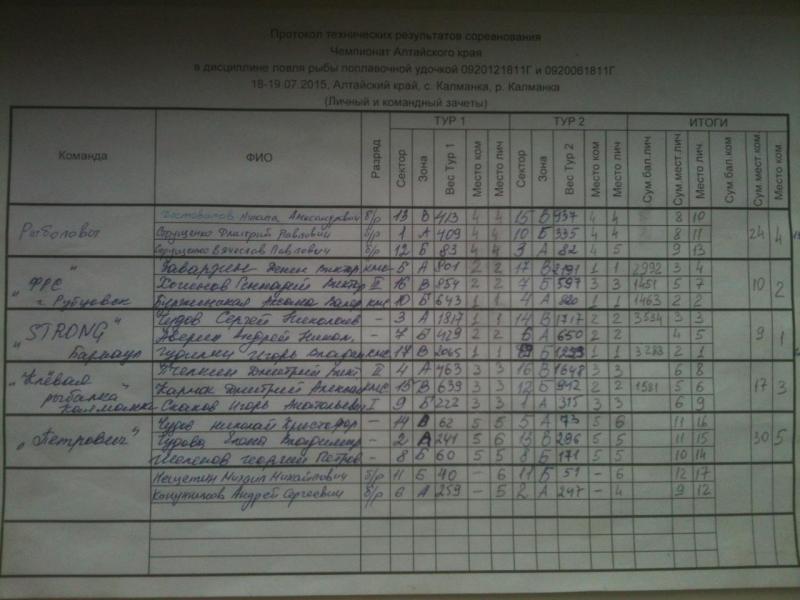 Протокол технических результатов соревнования
Чемпионат Алтайского края
в дисциплине ловля рыбы поплавочной удочкой 0920121811Г и 0920061811Г
18-19.07.2015, Алтайский край, с. Калманка, р. Калманка
(Личный и командный зачеты)
Команда ФИО Разряд ТУР 1 ТУР 2 ИТОГИ
Сектор Зона Вес Тур 1 Место ком Место лич Сектор Зона Вес Тур 2 Место ком Место лич Сум бал.лич Сум мест.лич Место лич Сум бал.ком Сум мест ком Место ком.
Никита Александрович б/р 13 В 413 4 4 15 Б 937 4 4 8 10
Рыболовот Дмитрий Павлович б/р 1 А 409 4 4 10 Б 335 4 4 8 11 24 4
Вячеслав Павлович б/р 12 Б 83 4 4 3 А 82 4 5 9 13
Денис Виктор кмс 5 А 801 2 2 17 1 1 2992 3 4
"ФРС" г. Рубцовск Геннадий Виктор II 16 В 854 2 2 7 Б 597 3 3 1451 5 7 10 2
Оксана Валер кмс 10 Б 643 1 1 4 А 820 1 1 1463 2 2
Чудов Сергей Николаев - 3 А 1817 1 1 14 В 1717 2 2 3534 3 3
"STRONG" Барнаул Аверин Андрей Никол. - 7 Б 429 2 2 6 А 650 2 2 4 5 9 1
Игорь кмс 17 В 2045 1 1 Б 1 1 2 1
Дмитрий Викт II 4 А 463 3 3 16 В 1648 3 3 6 8
"Клёвая рыбалка" Калманка Дмитрий Алексан кмс 15 В 639 3 3 12 Б 912 2 2 1581 5 6 17 3
Скаков Игорь Анатольевич I 9 Б 222 3 3 1 А 315 3 3 6 9
Чудов Николай Христофор - 14 В 62 5 5 5 А 73 5 6 11 16
"Петрович" Чудова Владимир - 2 А 241 5 6 13 В 296 5 5 11 15 30 5
Георгий Петров - 8 Б 60 5 5 8 Б 171 5 5 10 14
Нещетин Михаил Михайлович б/р 11 Б 40 - 6 11 Б 51 - 6 12 17
Андрей Сергеевич б/р 6 А 259 - 5 2 А 247 - 4 9 12